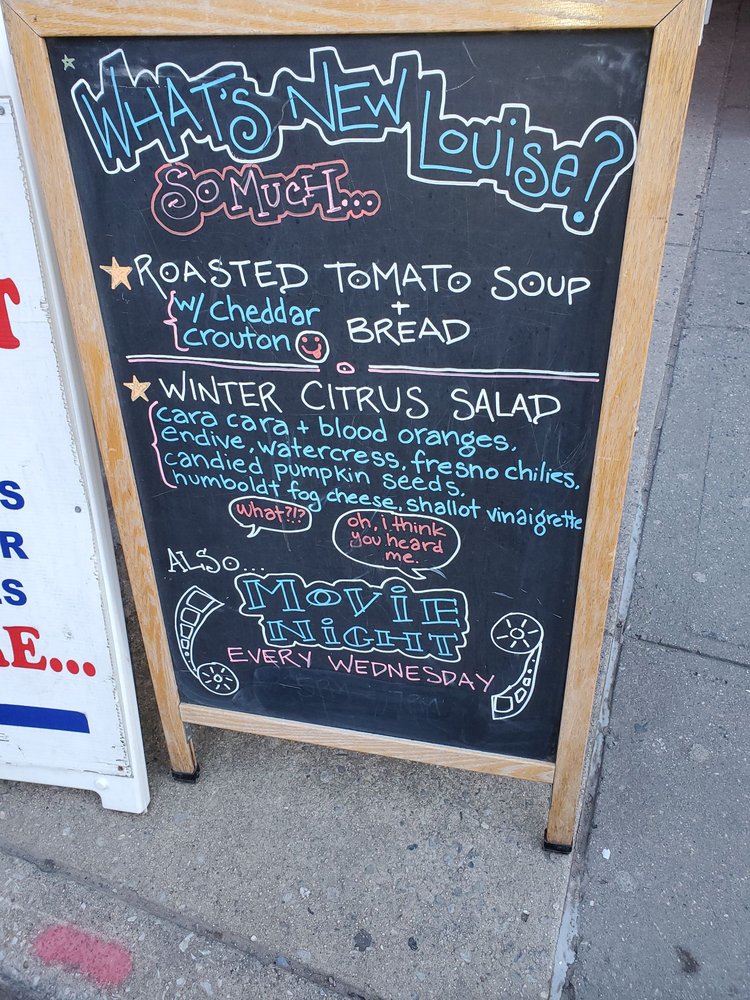 WHAT'S NEW LOUISE?
SO MUCH...
ROASTED TOMATO SOUP
w/ cheddar
crouton
+
BREAD
WINTER CITRUS SALAD
cara cara + blood oranges,
endive, watercress, fresno chilies,
candied pumpkin seeds,
humboldt fog cheese, shallot vinaigrette
what?!?
oh, i think
you heard
me.
ALSO...
MOVIE
NIGHT
EVERY WEDNESDAY